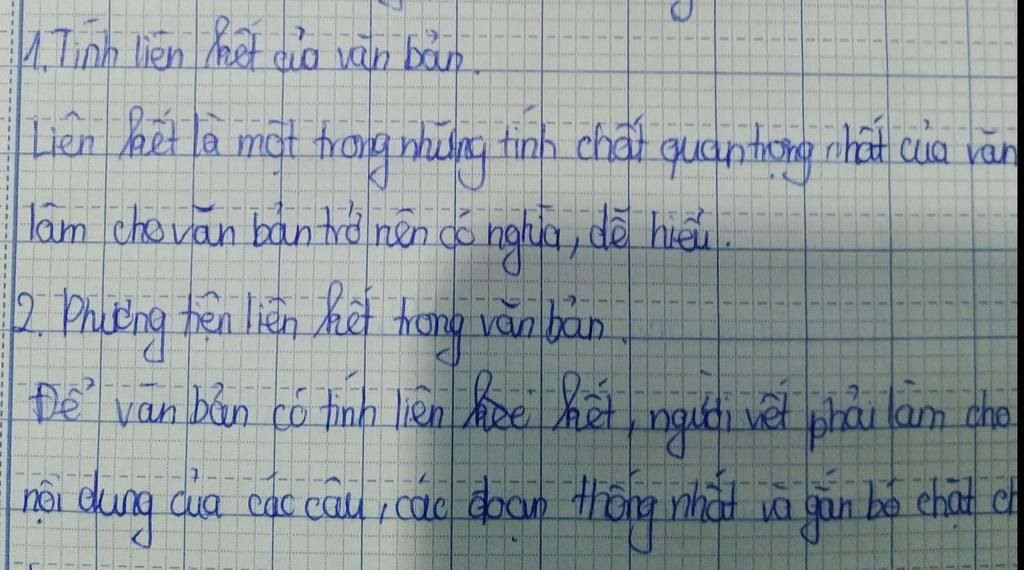 1. Tính liên kết của văn bản.
Liên kết là một trong những tính chất quan trọng nhất của văn
làm cho văn bản trở nên có nghĩa, dễ hiểu.
2. Phương tiện liên kết trong văn bản.
Để văn bản có tính liên kết, người viết phải làm cho
nội dung của các câu, các đoạn thống nhất và gắn bó chặt ch